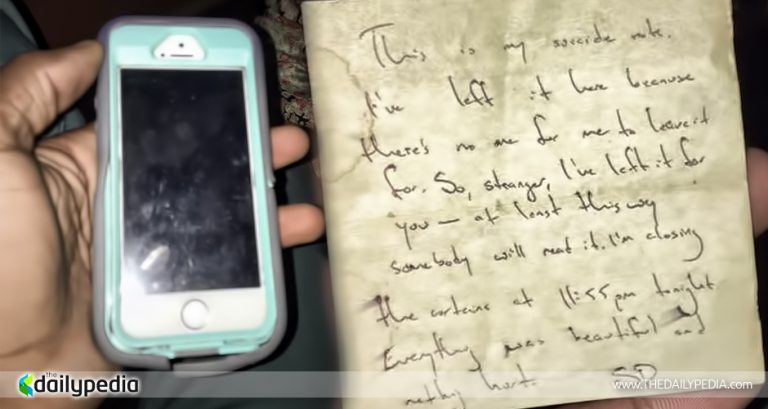 This is my suicide note.
I've left it here because
there's no one for me to leave it
for. So, stranger, I've left it for
you — at least this way
somebody will read it. I'm closing
the curtains at 11:55pm tonight
Everything was beautiful and
nothing hurt. SD
the
dailypedia
WWW.THEDAILYPEDIA.COM